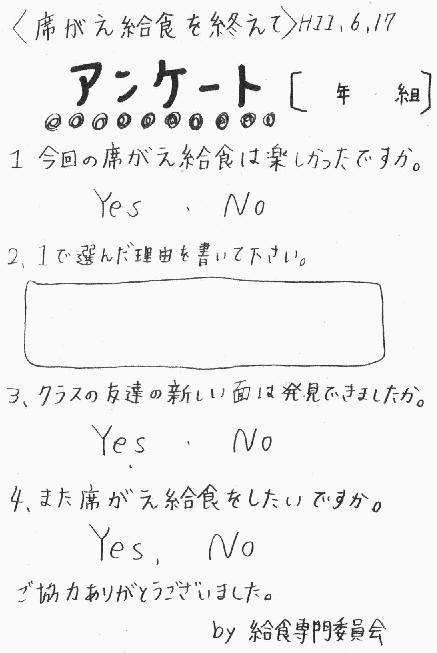 〈席がえ給食を終えて〉H11,6,17
アンケート [ 年 組]
1 今回の席がえ給食は楽しかったですか。
Yes . No
2、1で選んだ理由を書いて下さい。
3、クラスの友達の新しい面は発見できましたか。
Yes . No
4、また席がえ給食をしたいですか。
Yes, No
ご協力ありがとうございました。
by 給食専門委員会